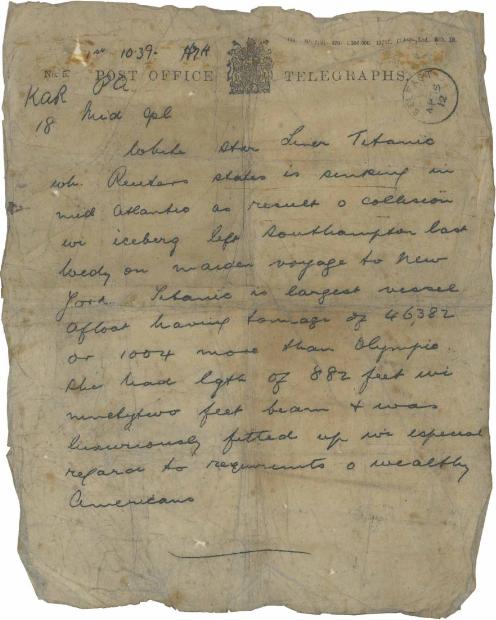 1039.
POST OFFICE TELEGRAPHS.
KAR PA
18 Mid Gbl
White Star Liner Titanic
wh. Reuters states is sinking in
mid Atlantic as result o collision
wi iceberg left Southampton last
Wedy on maiden voyage to New
York. Titanic is largest vessel
afloat having tonnage of 46,382
or 1004 more than Olympic.
She had lgth of 882 feet wi
ninetytwo feet beam & was
luxuriously fitted up wi especial
regard to requirmts o wealthy
Americans